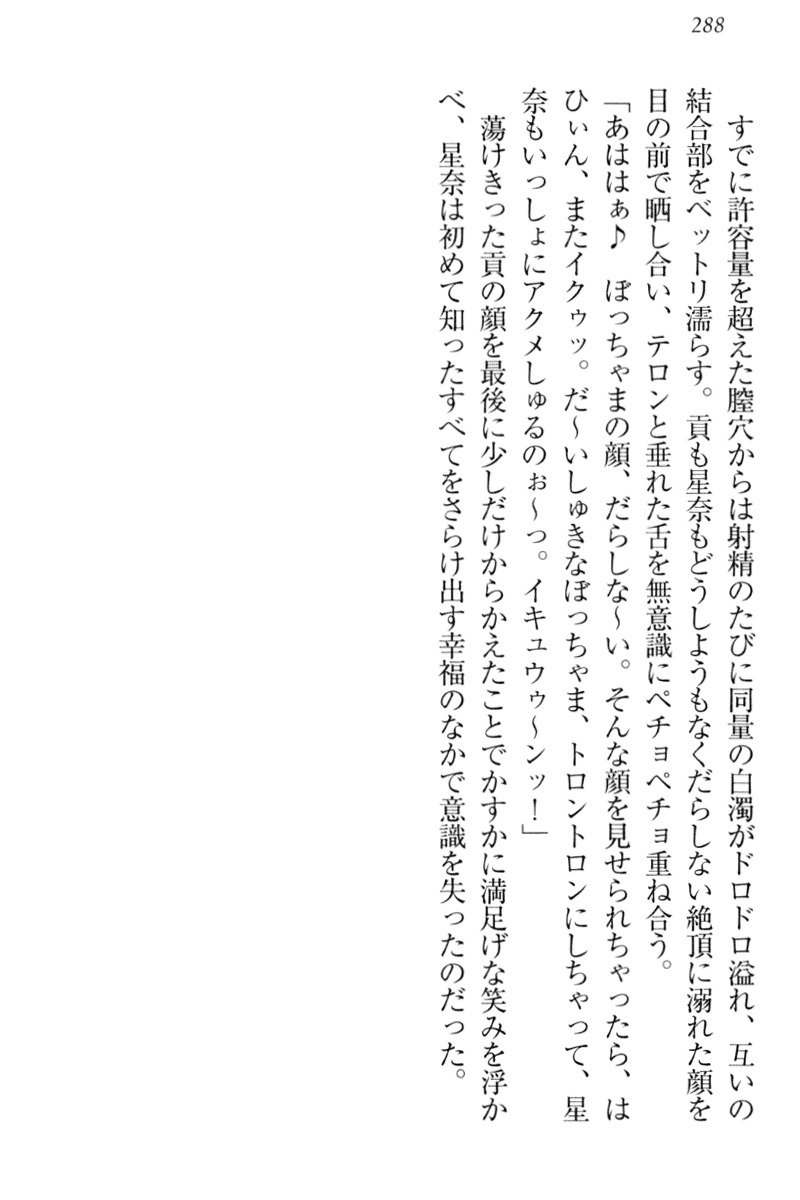 288
　すでに許容量を超えた膣穴からは射精のたびに同量の白濁がドロドロ溢れ、互いの
結合部をベットリ濡らす。貢も星奈もどうしようもなくだらしない絶頂に溺れた顔を
目の前で晒し合い、テロンと垂れた舌を無意識にペチョペチョ重ね合う。
「あははぁ♪　ぼっちゃまの顔、だらしな～い。そんな顔を見せられちゃったら、は
ひぃん、またイクゥッ。だ～いしゅきなぼっちゃま、トロントロンにしちゃって、星
奈もいっしょにアクメしゅるのぉ～っ。イキュウゥ～ンッ！」
　蕩けきった貢の顔を最後に少しだけからかえたことでかすかに満足げな笑みを浮か
べ、星奈は初めて知ったすべてをさらけ出す幸福のなかで意識を失ったのだった。